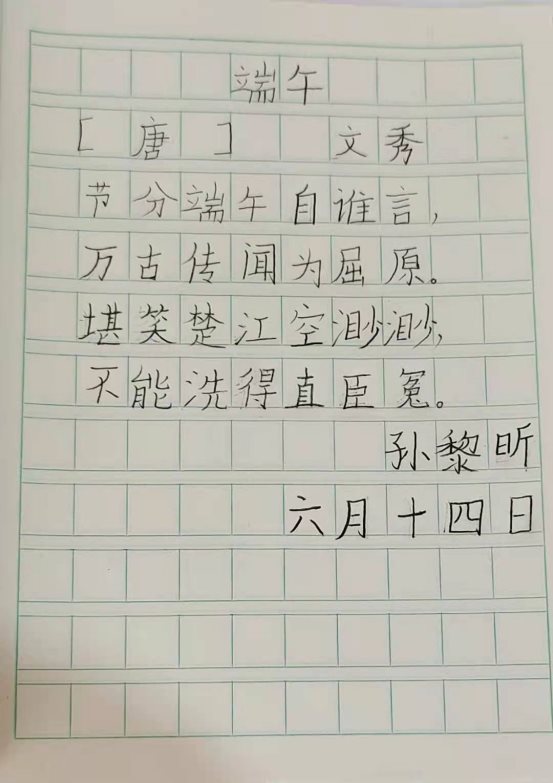 端午
[唐] 文秀
节分端午自谁言,
万古传闻为屈原。
堪笑楚江空渺渺,
不能洗得直臣冤。
孙黎昕
六月十四日